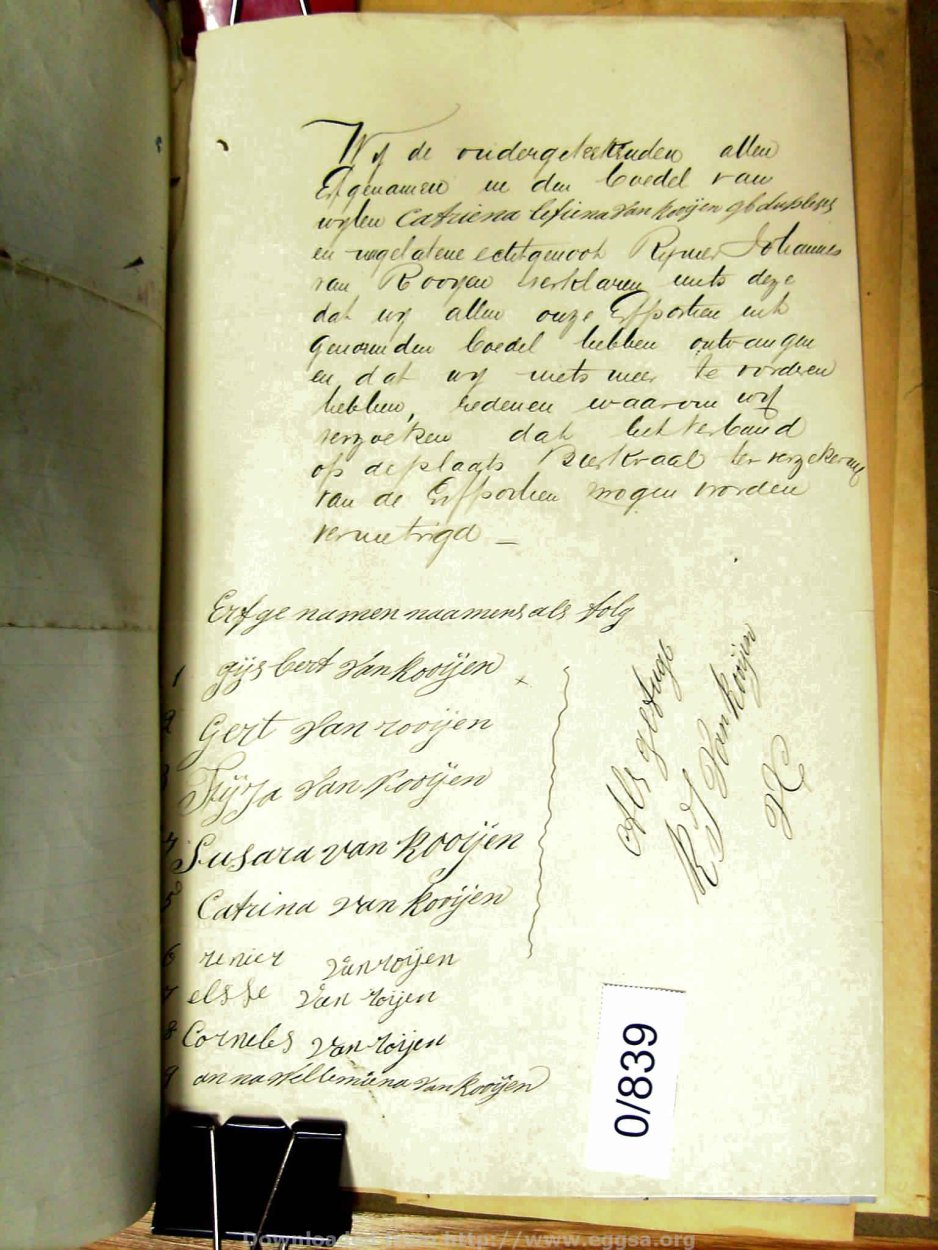 Wij de ondergeteekenden allen
Erfgenamen in den boedel van
wylen Catriena van Rooijen gb duplesys
en nagelatene echtgenoot Rynier Johannes
van Rooyen verklaren mits deze
dat wy allen onze Erfportien uit
genoemden boedel hebben ontvangen
en dat wy niets meer te vorderen
hebben, redenen waarom wy
verzoeken dat het verband
op de plaats ter verzekering
van de Erfportien mogen worden
vernietigd —
Erfgenamen naamens als folg
1 gijsbert van Rooijen x
2 Gert van rooijen
3 van Rooijen
4 Susara van Rooijen
5 Catrina van Rooijen
6 renier van roijen
7 elsse van roijen
8 Cornelis van roijen
9 anna willemiena van Rooijen
Als getuge
R J van Rooijen
0/839
Downloaded from http://www.eggsa.org